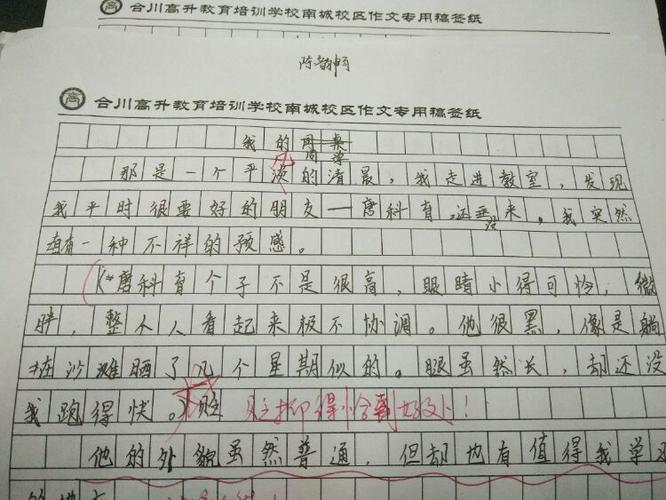 合川高升教育培训学校南城校区作文专用稿签纸
陈韵
合川高升教育培训学校南城校区作文专用稿签纸
我的同桌
同学
凡
那是一个平淡的清晨，我走进教室，发现
我平时很要好的朋友——唐科有还没来。我突然
有一种不祥的预感。
唐科有个子不是很高，眼睛小得可怜，微
胖，整个人看起来极不协调。他很黑，像是躺
在沙滩晒了几个星期似的。腿虽然长，却还没
我跑得快。贬 贬抑得恰到好处！
他的外貌虽然普通，但却也有值得我学习
的地方